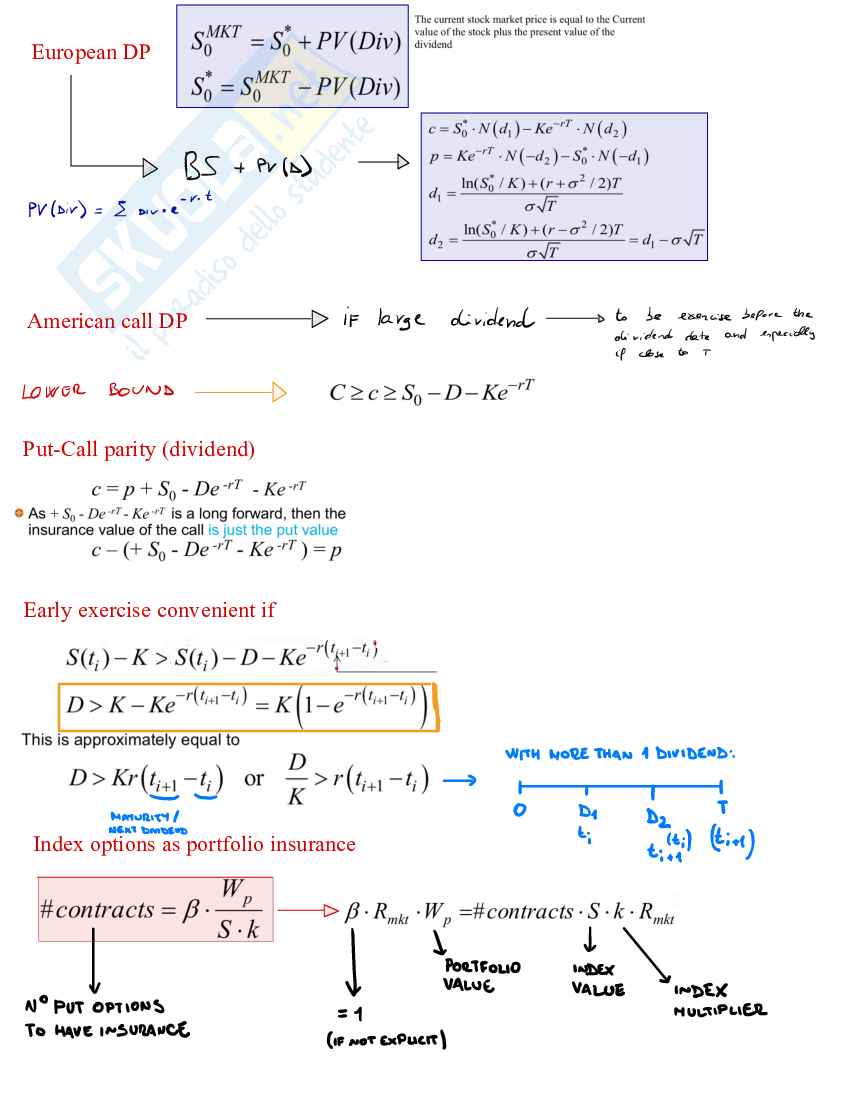 The current stock market price is equal to the Current
value of the stock plus the present value of the
dividend
European DP
S₀^MKT = S₀* + PV(Div)
S₀* = S₀^MKT − PV(Div)
BS + PV(D)
c = S₀* · N(d₁) − Ke^−rT · N(d₂)
p = Ke^−rT · N(−d₂) − S₀* · N(−d₁)
d₁ = ln(S₀* / K) + (r + σ² / 2)T / σ√T
d₂ = ln(S₀* / K) + (r − σ² / 2)T / σ√T = d₁ − σ√T
PV(DIV) = Σ DIV · e^−r·t
SKUOLA.net
il paradiso dello studente
American call DP
IF large dividend
to be exercise before the
dividend date and especially
if close to T
LOWER BOUND
C ≥ c ≥ S₀ − D − Ke^−rT
Put-Call parity (dividend)
c = p + S₀ - De^-rT - Ke^-rT
As + S₀ - De^-rT - Ke^-rT is a long forward, then the
insurance value of the call is just the put value
c – (+ S₀ - De^-rT - Ke^-rT) = p
Early exercise convenient if
S(tᵢ) − K > S(tᵢ) − D − Ke^−r(tᵢ₊₁−tᵢ)
D > K − Ke^−r(tᵢ₊₁−tᵢ) = K(1 − e^−r(tᵢ₊₁−tᵢ))
This is approximately equal to
D > Kr(tᵢ₊₁ − tᵢ) or D/K > r(tᵢ₊₁ − tᵢ)
MATURITY/
NEXT DIVIDEND
WITH MORE THAN 1 DIVIDEND:
0 D₁ D₂ T
tᵢ tᵢ₊₁ (tᵢ) (tᵢ₊₁)
Index options as portfolio insurance
#contracts = β · W_p / S · k
β · R_mkt · W_p = #contracts · S · k · R_mkt
N° PUT OPTIONS
TO HAVE INSURANCE
= 1
(IF NOT EXPLICIT)
PORTFOLIO
VALUE
INDEX
VALUE
INDEX
MULTIPLIER